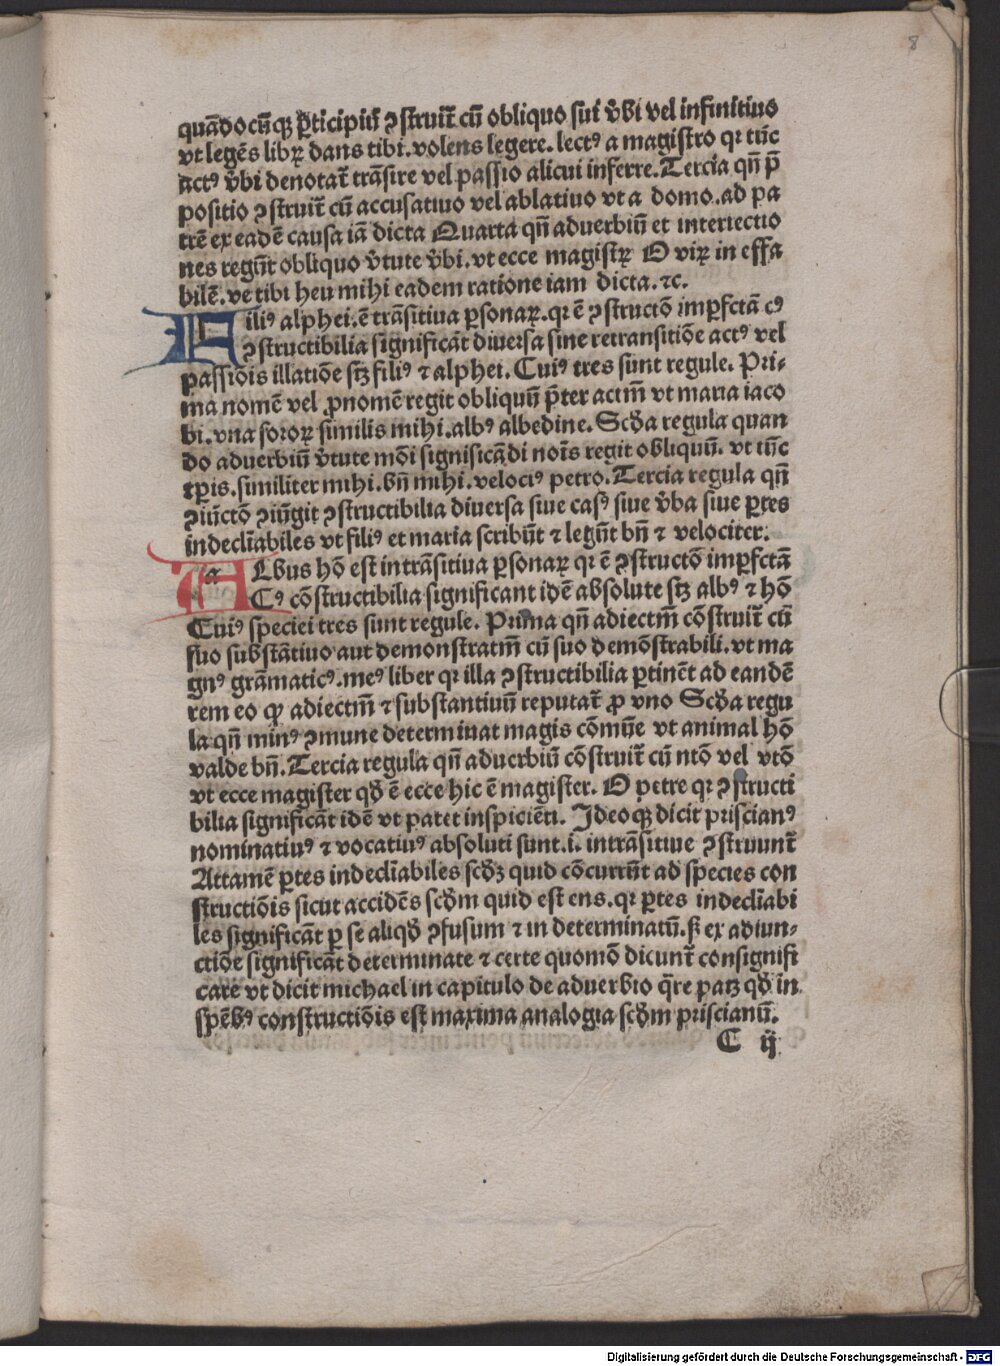 8
quādocūqꝫ ꝑticipiū ꝯstruit᷑ cū obliquo sui v̓bi vel infinitiuo
vt legēs libꝝ dans tibi. volens legere. lectꝰ a magistro qꝛ tūc
actꝰ v̓bi denotat᷑ trāsire vel passio alicui inferre. Tercia qn̄ p̄
positio ꝯstruit᷑ cū accusatiuo vel ablatiuo vt a domo. ad pa
trē ex eadē causa iā dicta Quarta qn̄ aduerbiū et interiectio
nes regūt obliquo v̓tute v̓bi. vt ecce magistꝝ O viꝝ in effa
bilē. ve tibi heu mihi eadem ratione iam dicta. ⁊c.
Filiꝰ alphei. ē trāsitiua ꝑsonaꝝ. qꝛ ē ꝯstructō imꝑfctā cꝰ
ꝯstructibilia significāt diuersa sine retransitiōe actꝰ vel
passiōis illatiōe sꝫ filiꝰ ⁊ alphei. Cuiꝰ tres sunt regule. Pri-
ma nomē vel ꝓnomē regit obliquū p̄ter actm̄ vt maria iaco
bi. vna soroꝝ similis mihi. albꝰ albedine. Scd̓a regula quan
do aduerbiū v̓tute mōi significādi noīs regit obliquū. vt tūc
tꝑis. similiter mihi. bn̄ mihi. velociꝰ petro. Tercia regula qn̄
ꝯiūctō ꝯiūgit ꝯstructibilia diuersa siue casꝰ siue v̓ba siue ꝑtes
indecliābiles vt filiꝰ et maria scribūt ⁊ legūt bn̄ ⁊ velociter.
aLbus hō est intrāsitiua ꝑsonaꝝ qꝛ ē ꝯstructō imꝑfctā
Cꝰ cōstructibilia significant idē absolute sꝫ albꝰ ⁊ hō
Cuiꝰ speciei tres sunt regule. Prima qn̄ adiectm̄ cōstruit᷑ cū
suo substātiuo aut demonstratm̄ cū suo demōstrabili. vt ma
gnꝰ grāmaticꝰ. meꝰ liber qꝛ illa ꝯstructibilia ꝑtinēt ad eandē
rem eo ꝙ adiectm̄ ⁊ substantiuū reputat᷑ ꝓ vno Scd̓a regu
la qn̄ minꝰ ꝯmune determinat magis cōmūe vt animal hō
valde bn̄. Tercia regula qn̄ aduerbiū cōstruit᷑ cū ntō vel vtō
vt ecce magister qd̓ ē ecce hic ē magister. O petre qꝛ ꝯstructi
bilia significāt idē vt patet inspiciēti. Ideoqꝫ dicit priscianꝰ
nominatiuꝰ ⁊ vocatiuꝰ absoluti sunt. i. intrāsitiue ꝯstruunt᷑
Attamē ꝑtes indecliābiles scd̓ꝫ quid cōcurrūt ad species con
structiōis sicut accidēs scd̓m quid est ens. qꝛ ꝑtes indecliābi
les significāt ꝑ se aliqd̓ ꝯfusum ⁊ in determinatū. sꝫ ex adiun-
ctiōe significāt determinate ⁊ certe quomō dicunt᷑ consignifi
care vt dicit michael in capitulo de aduerbio q̄re patꝫ qd̓ in
spēbꝰ constructiōis est maxima analogia scd̓m priscianū.
C ij
Digitalisierung gefördert durch die Deutsche Forschungsgemeinschaft - DFG